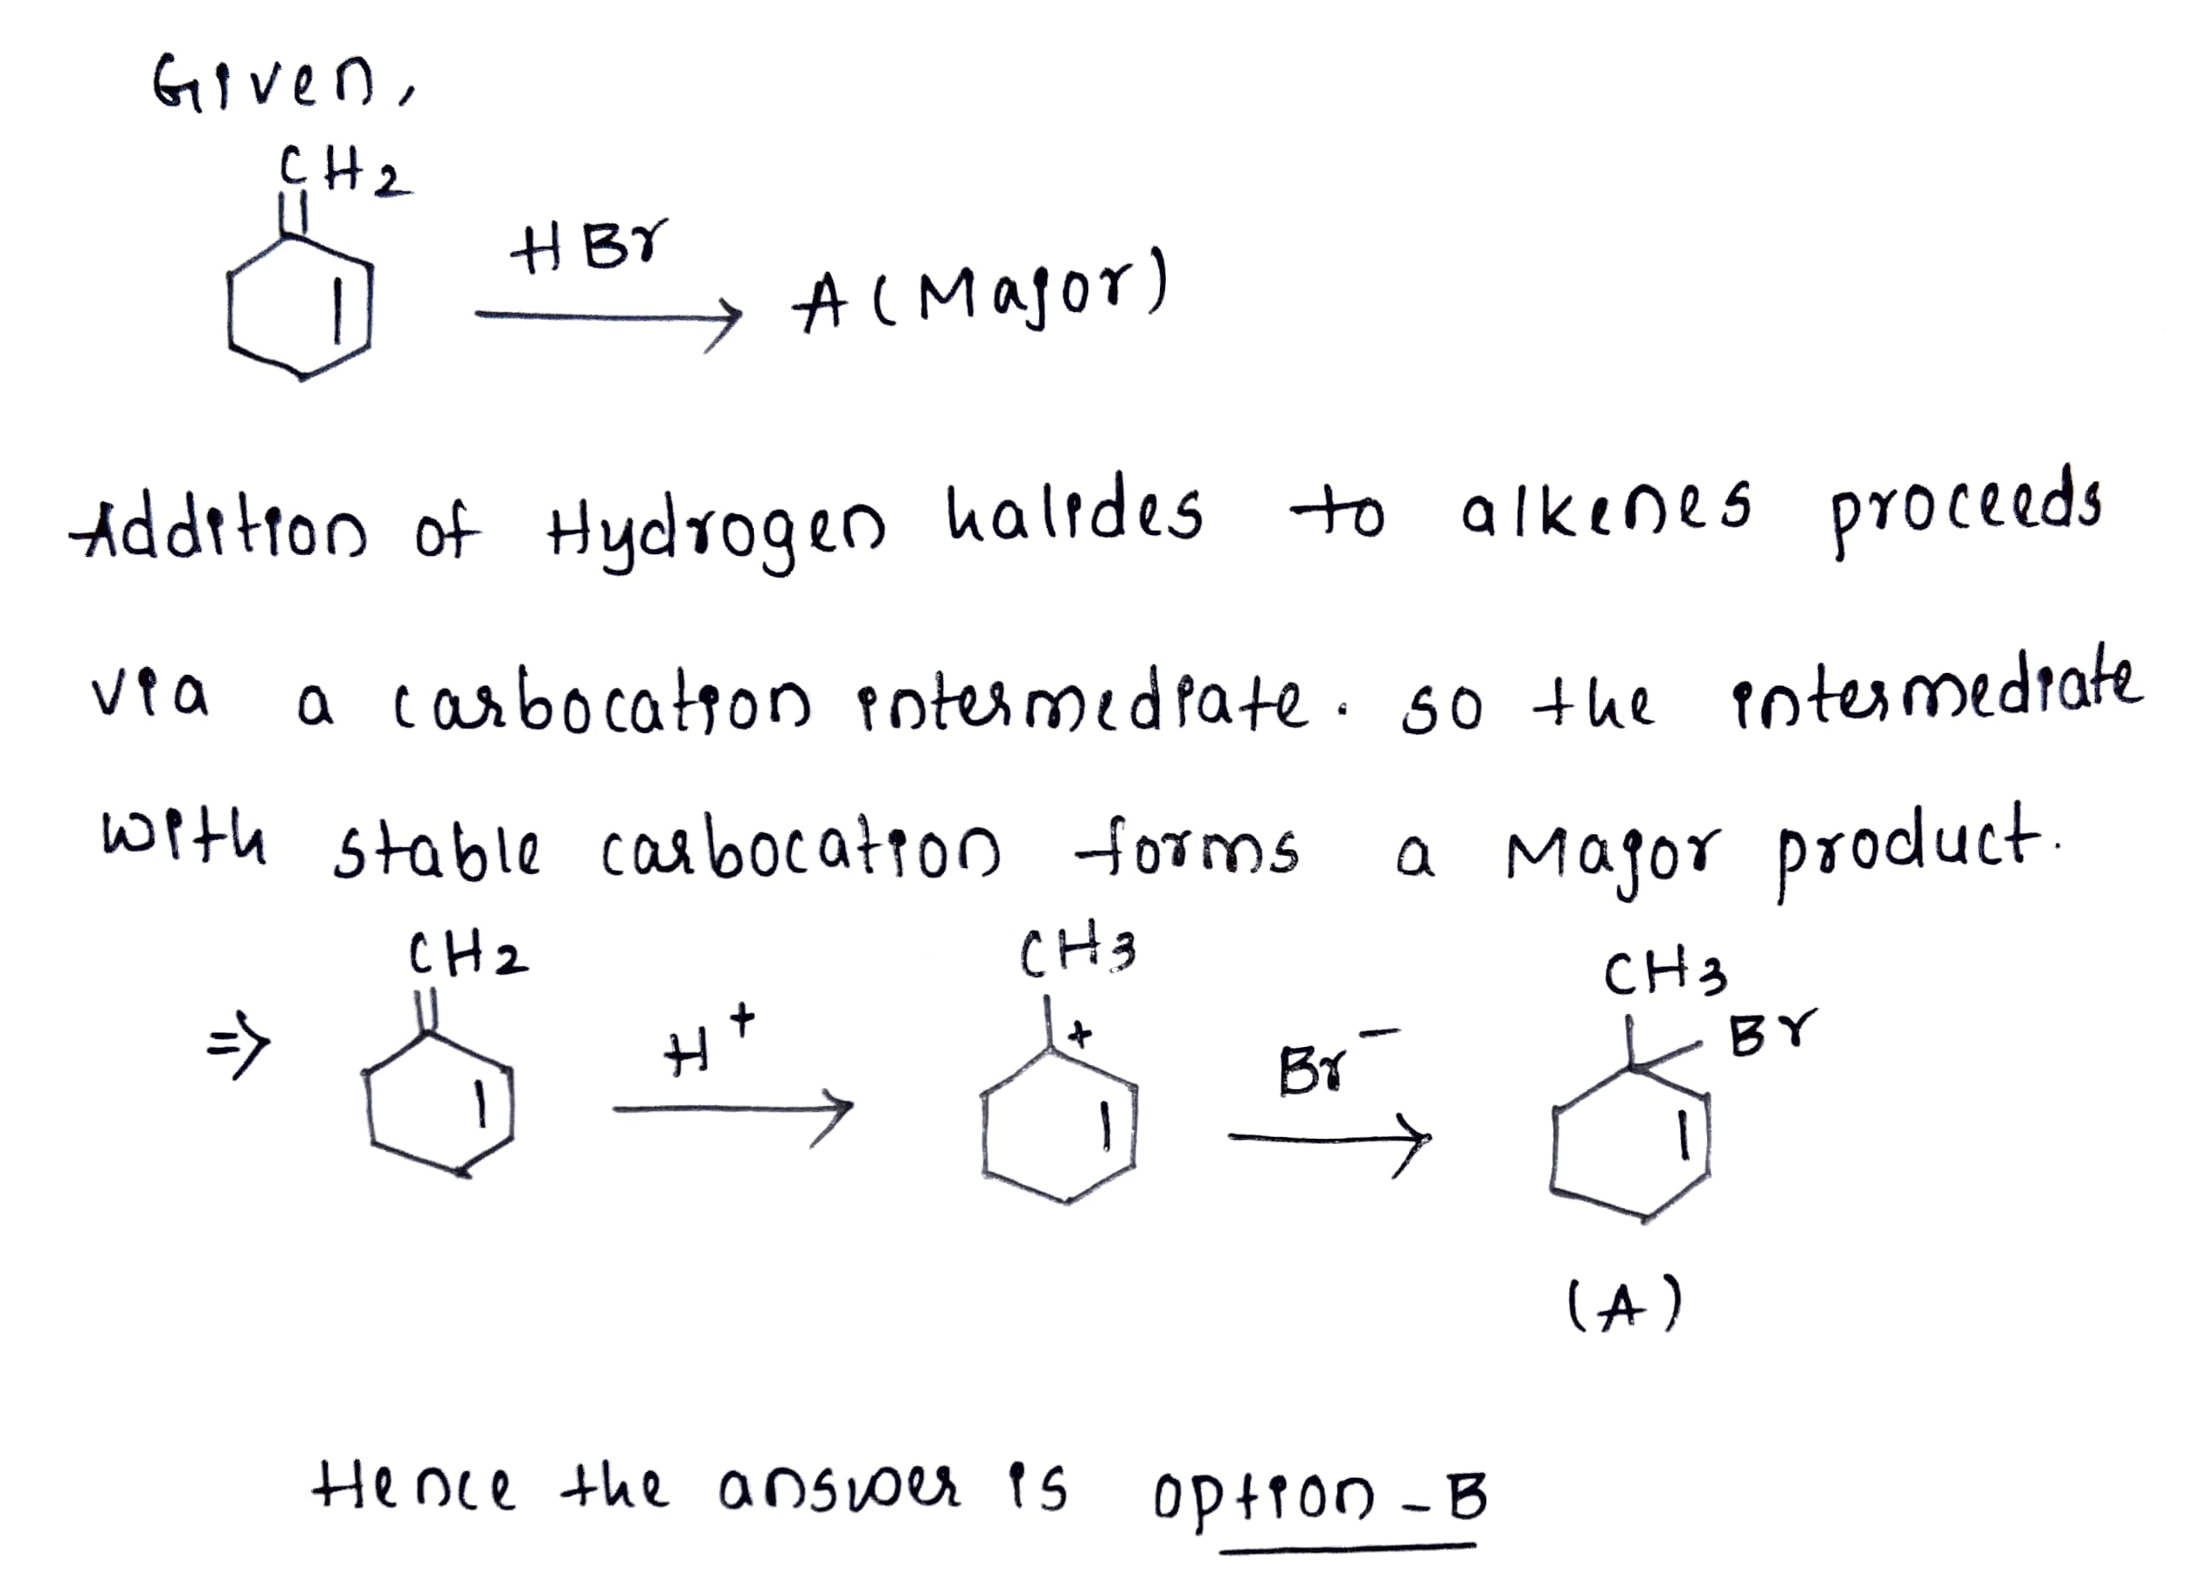 Given,
CH2
HBr
A (Major)
Addition of Hydrogen halides to alkenes proceeds
via a carbocation intermediate. so the intermediate
with stable carbocation forms a Major product.
CH2 CH3 CH3
⇒ H+ + Br- Br
(A)
Hence the answer is option - B